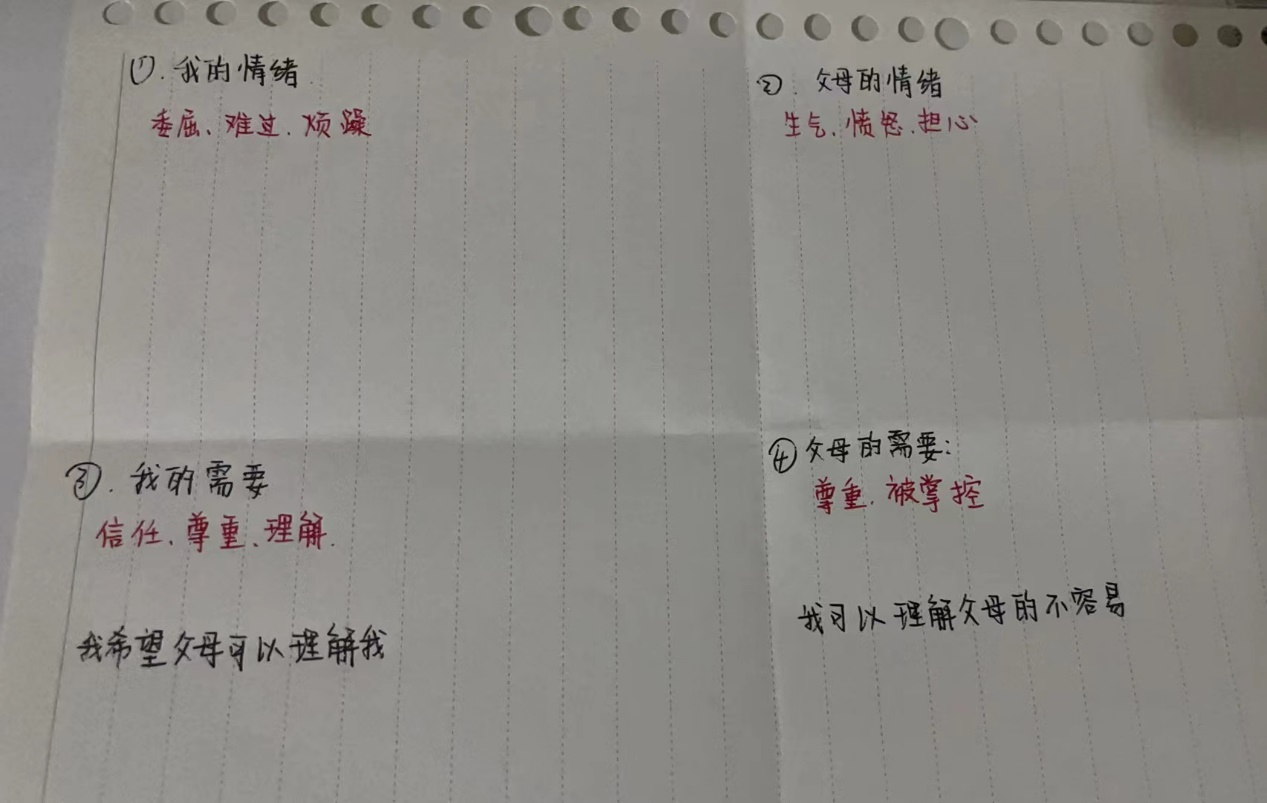 ①.我的情绪
委屈、难过.烦躁
②.父母的情绪
生气、愤怒.担心
③.我的需要
信任、尊重、理解.
我希望父母可以理解我
④父母的需要:
尊重.被掌控
我可以理解父母的不容易